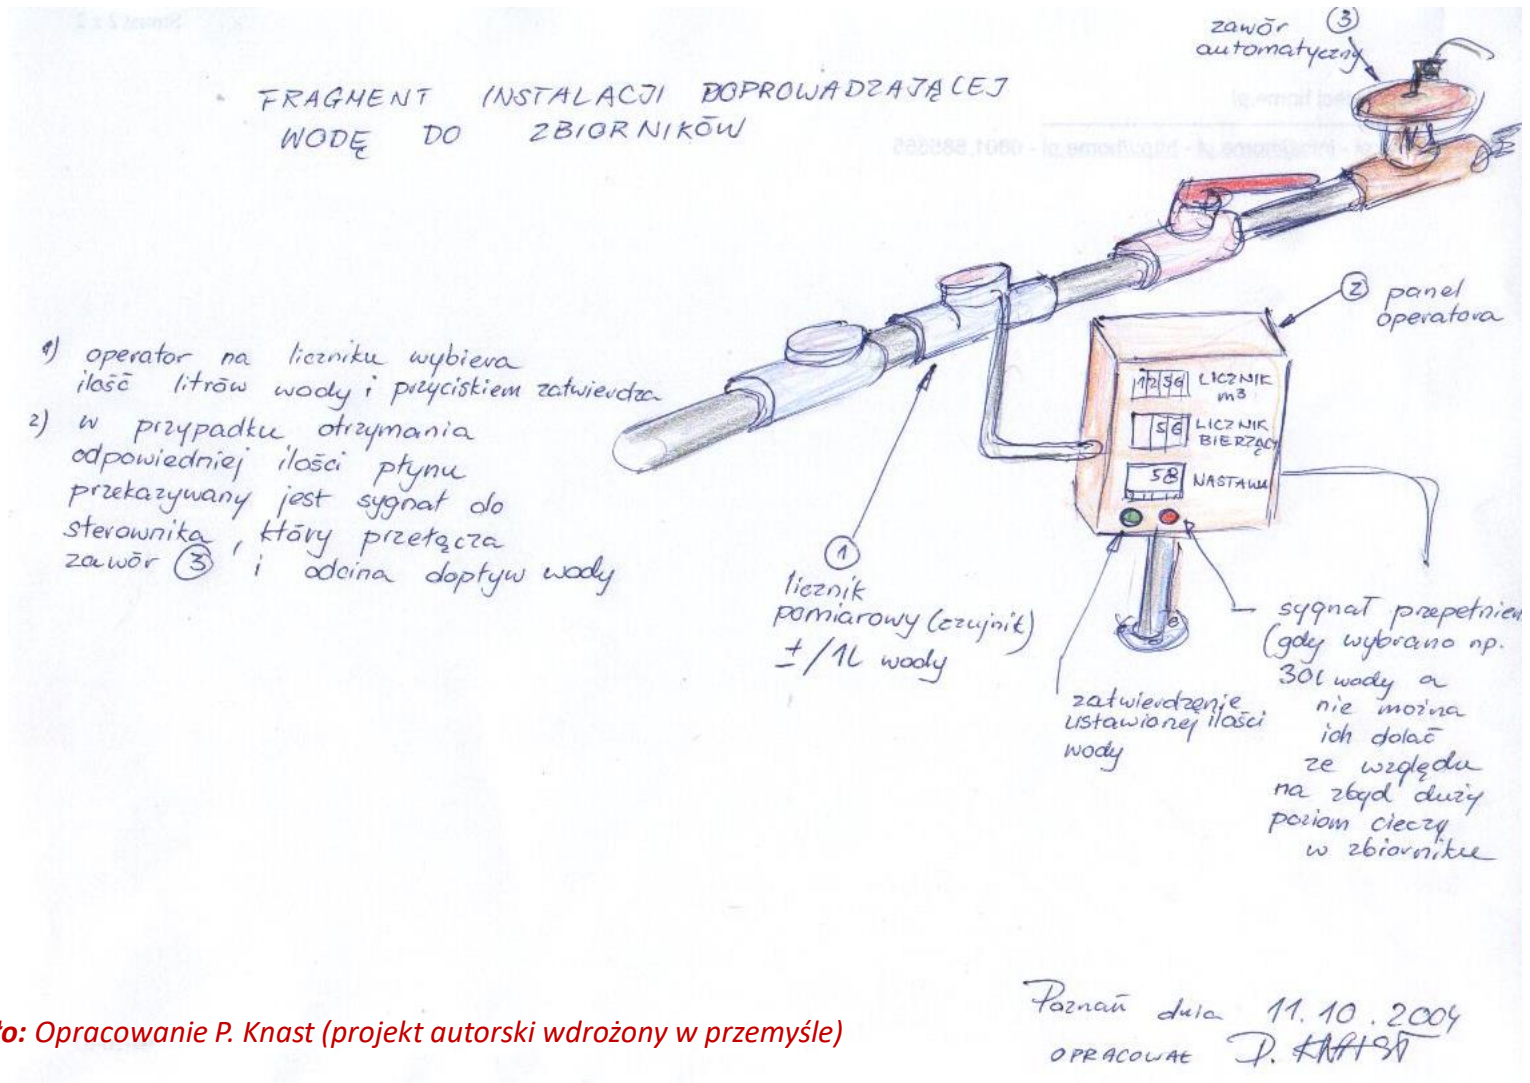 FRAGMENT INSTALACJI DOPROWADZAJĄCEJ
WODĘ DO ZBIORNIKÓW
zawór ③
automatyczny
② panel
operatora
1) operator na liczniku wybiera
ilość litrów wody i przyciskiem zatwierdza
2) w przypadku otrzymania
odpowiedniej ilości płynu
przekazywany jest sygnał do
sterownika, który przełącza
zawór ③ i odcina dopływ wody
1256 LICZNIK
m³
56 LICZNIK
BIERZĄCY
58 NASTAWA
①
licznik
pomiarowy (czujnik)
± /1L wody
zatwierdzenie
ustawionej ilości
wody
sygnał przepełnien
(gdy wybrano np.
30l wody a
nie można
ich dolać
ze względu
na zbyd duży
poziom cieczy
w zbiorniku
Poznań dnia 11.10.2004
OPRACOWAŁ P. KNAST
ło: Opracowanie P. Knast (projekt autorski wdrożony w przemyśle)